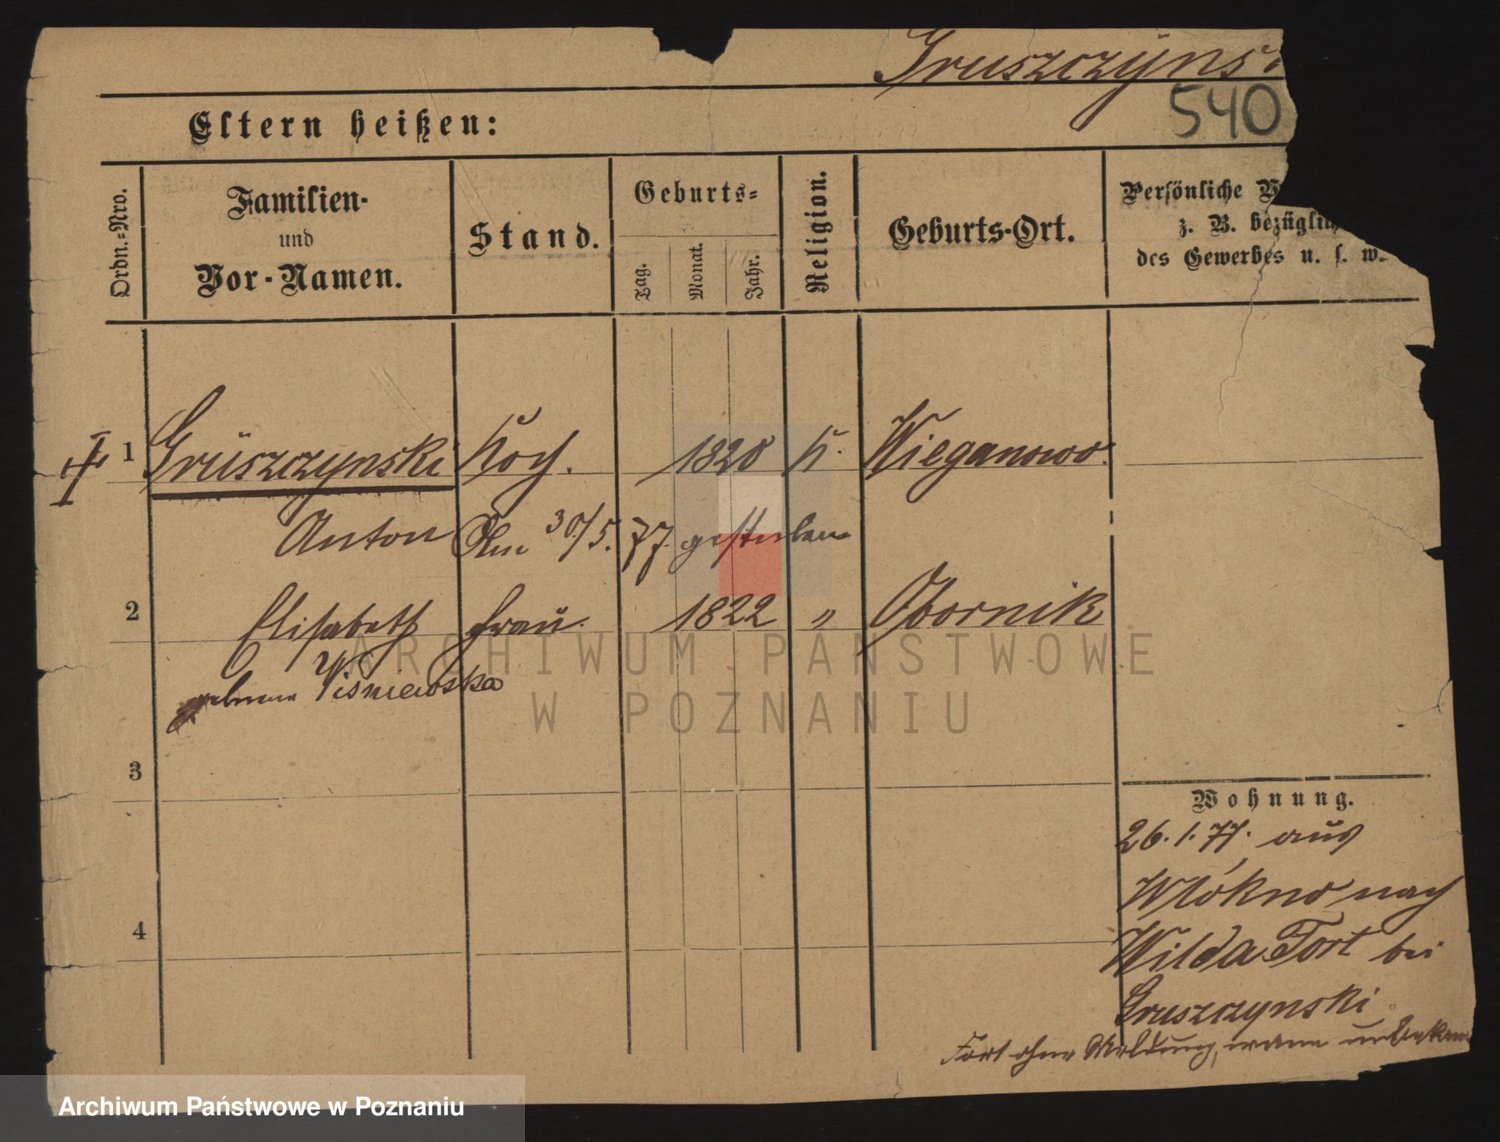 Gruszczyns
540
Eltern heißen:
Ordn.-Nro.
Familien-
und
Vor-Namen.
Stand.
Geburts-
Tag.
Monat.
Jahr.
Religion.
Geburts-Ort.
Persönliche V
z. B. bezüglich
des Gewerbes u. s. w.
1 Gruszczynski Koch. 1820 k. Wieganowo.
Anton Am 30/5. 77. gestorben
2 Elisabeth Frau. 1822 " Obornik
geborene Wisniewska
3
4
Wohnung.
26.1.77. aus
Wlókno nach
Wilda Fort bei
Gruszczynski
Fort ohne Meldung, wann unbekannt
ARCHIWUM PAŃSTWOWE
W POZNANIU
Archiwum Państwowe w Poznaniu